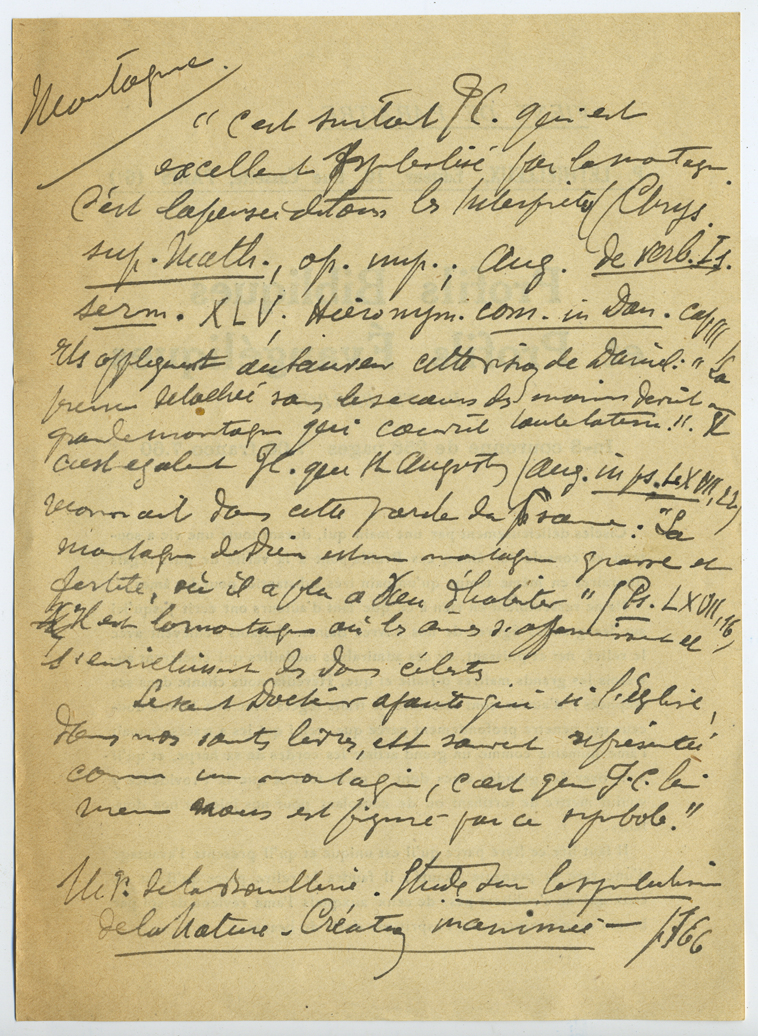 Montagne.
"C'est surtout J C. qui est
excellent symbolisé par la montagne
C'est la pensée de tous les Interprètes (Chrys.
sup. Math., op. imp.; Aug. de verb. Is.
serm. XLV; Hieronym. com. in Dan. cap III
Ils appliquent au Sauveur cette vision de Daniel: "La
pierre détachée sans le secours des mains devint une
grande montagne qui couvrit toute la terre." Et
c'est egalent J C. que St Augustin (Aug. in ps. LXVII, 22)
reconnait dans cette parole du psaume: "La
montagne de Dieu est une montagne grasse et
fertile, où il a plu a Dieu d'habiter" (Ps. LXVII, 16)
Il est la montagne où les âmes s'affermissent et
s'enrichissent des dons célestes
Le saint Docteur ajoute que si l'Eglise,
dans nos saints livres, est souvent représentée
comme une montagne, c'est que J. C. lui
meme nous est figuré par ce symbole."
de la Bouillerie. Etude sur le symbolisme
de la Nature - Création inanimée - p 166